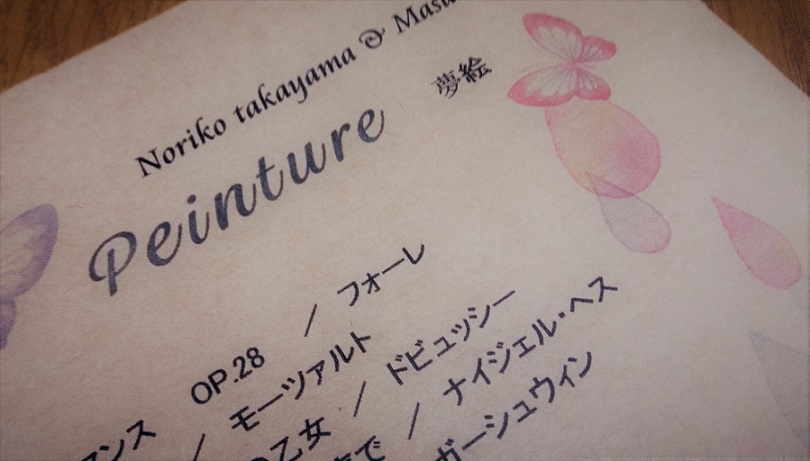 Noriko takayama & Masa
Peinture 夢絵
マンス OP.28 / フォーレ
/ モーツァルト
の乙女 / ドビュッシー
で / ナイジェル・ヘス
ガーシュウィン